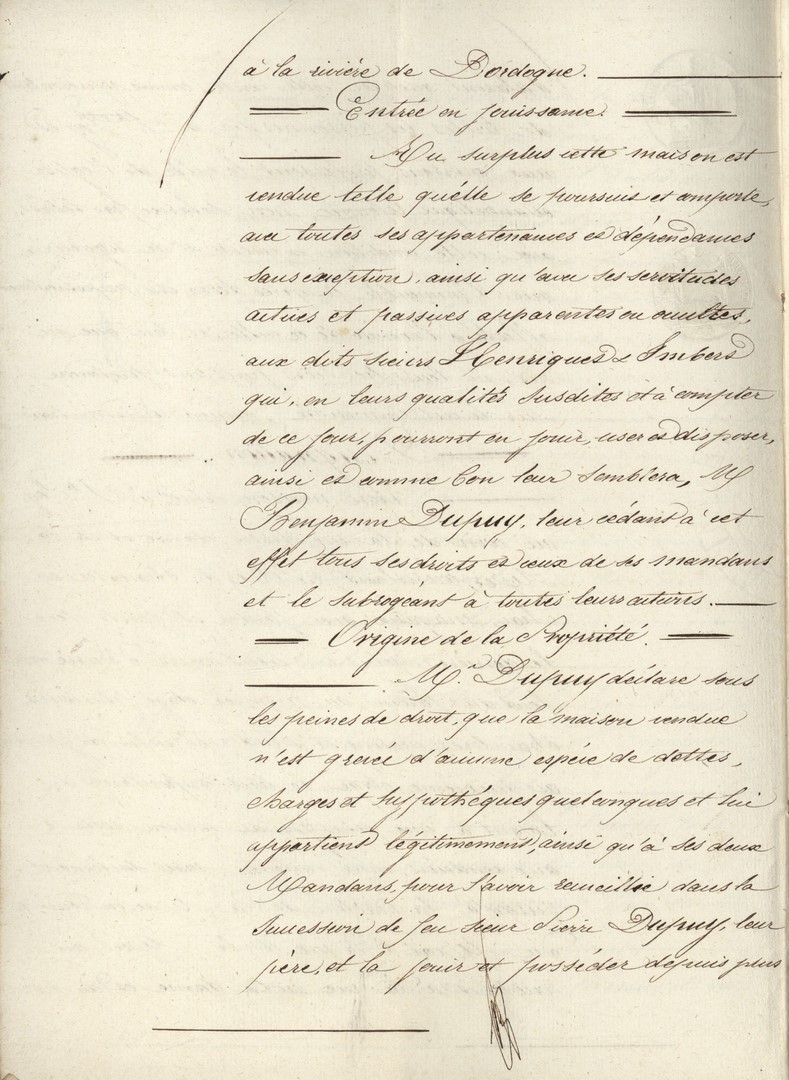 à la rivière de Dordogne.
Entrée en jouissance.
Au surplus cette maison est
vendue telle qu'elle se poursuis et comporte,
avec toutes ses appartenances et dépendances
sans exception, ainsi qu'avec ses servitudes
actives et passives apparentes ou occultes,
aux dits sieurs Henriques & Imbert
qui, en leurs qualités susdites et à compter
de ce jour, pourront en jouir, user et disposer,
ainsi et comme bon leur semblera, M
Benjamin Dupuy, leur cédant à cet
effet tous ses droits et ceux de ses mandans
et le subrogeant à toutes leurs actions.
Origine de la Propriété.
Mr. Dupuy déclare sous
les peines de droit, que la maison vendue
n'est grevée d'aucune espèce de dettes,
charges et hypothéques quelconques et lui
appartient légitimement, ainsi qu'à ses deux
Mandans, pour l'avoir recueillie dans la
succession de feu sieur Pierre Dupuy, leur
père, et la jouir et posséder depuis plus